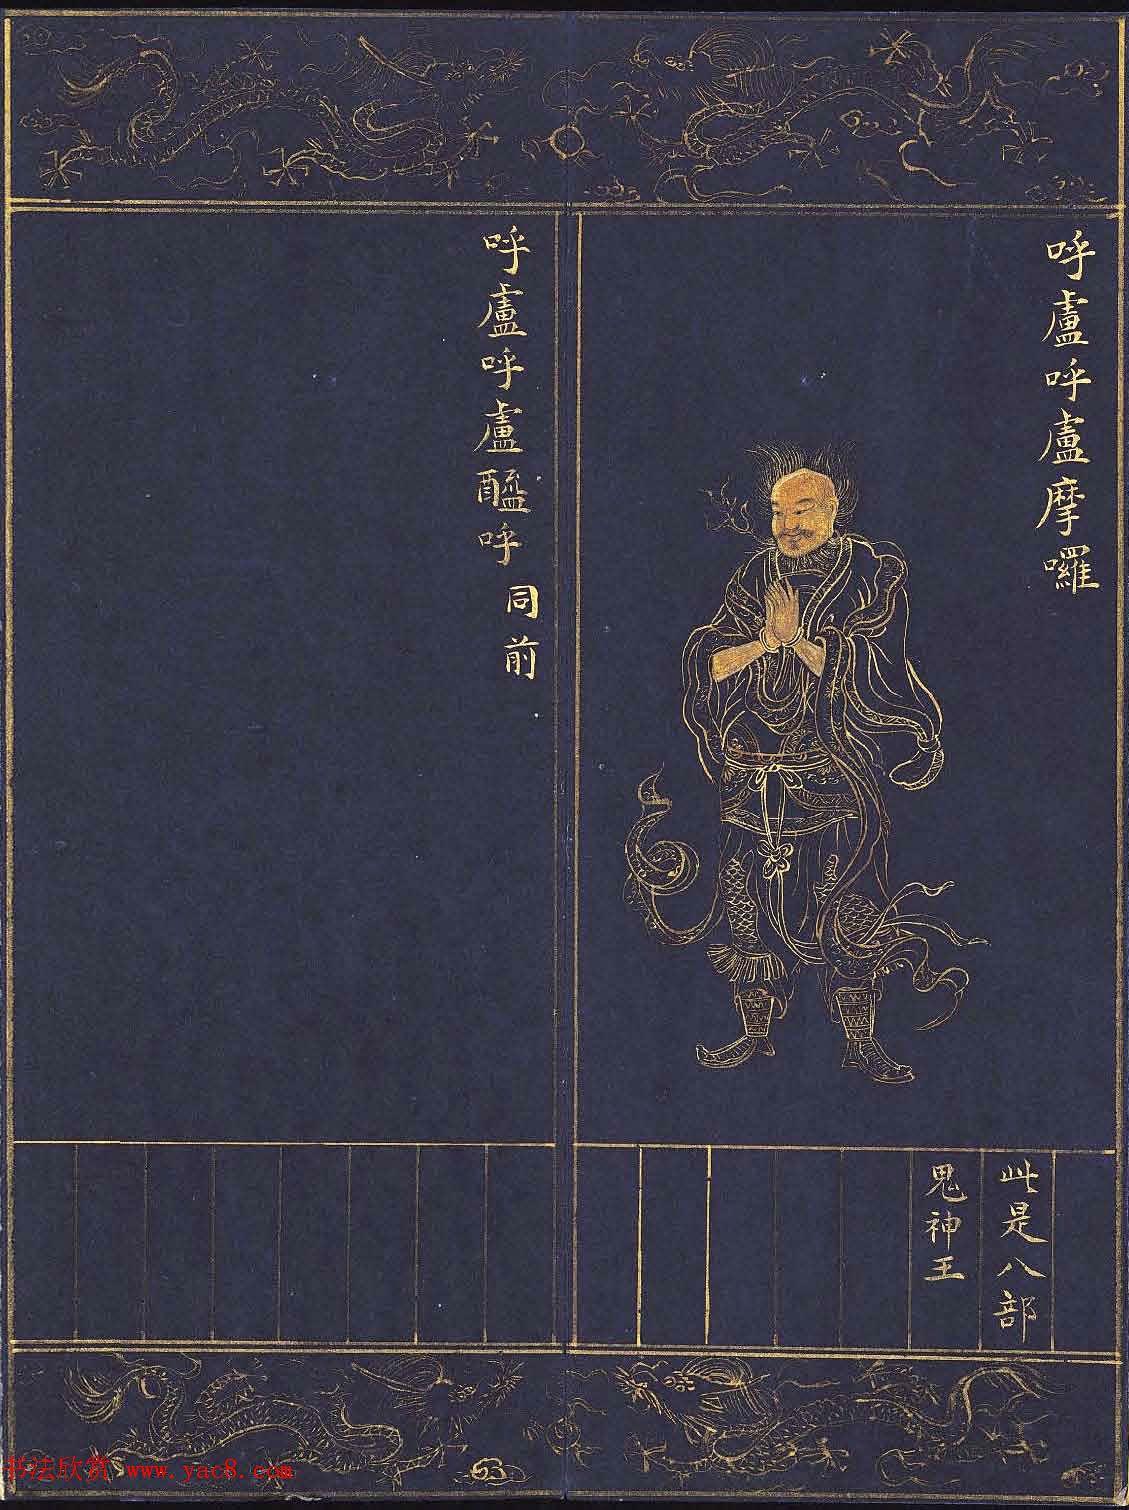 呼盧呼盧摩囉
此是八部
鬼神王
呼盧呼盧醯呼
同前
书法欣赏 www.yac8.com